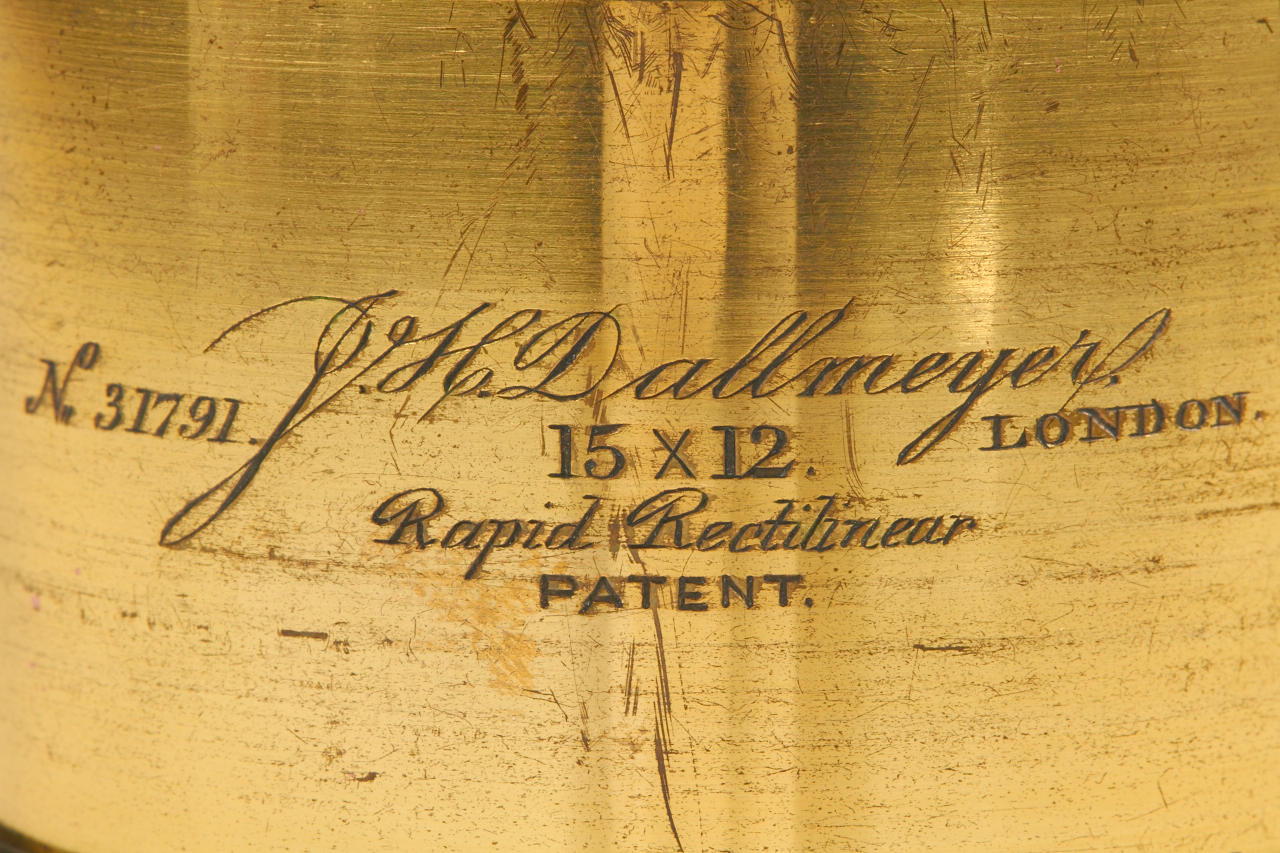 Nº 31791. J. H. Dallmeyer. LONDON.
15 X 12.
Rapid Rectilinear
PATENT.